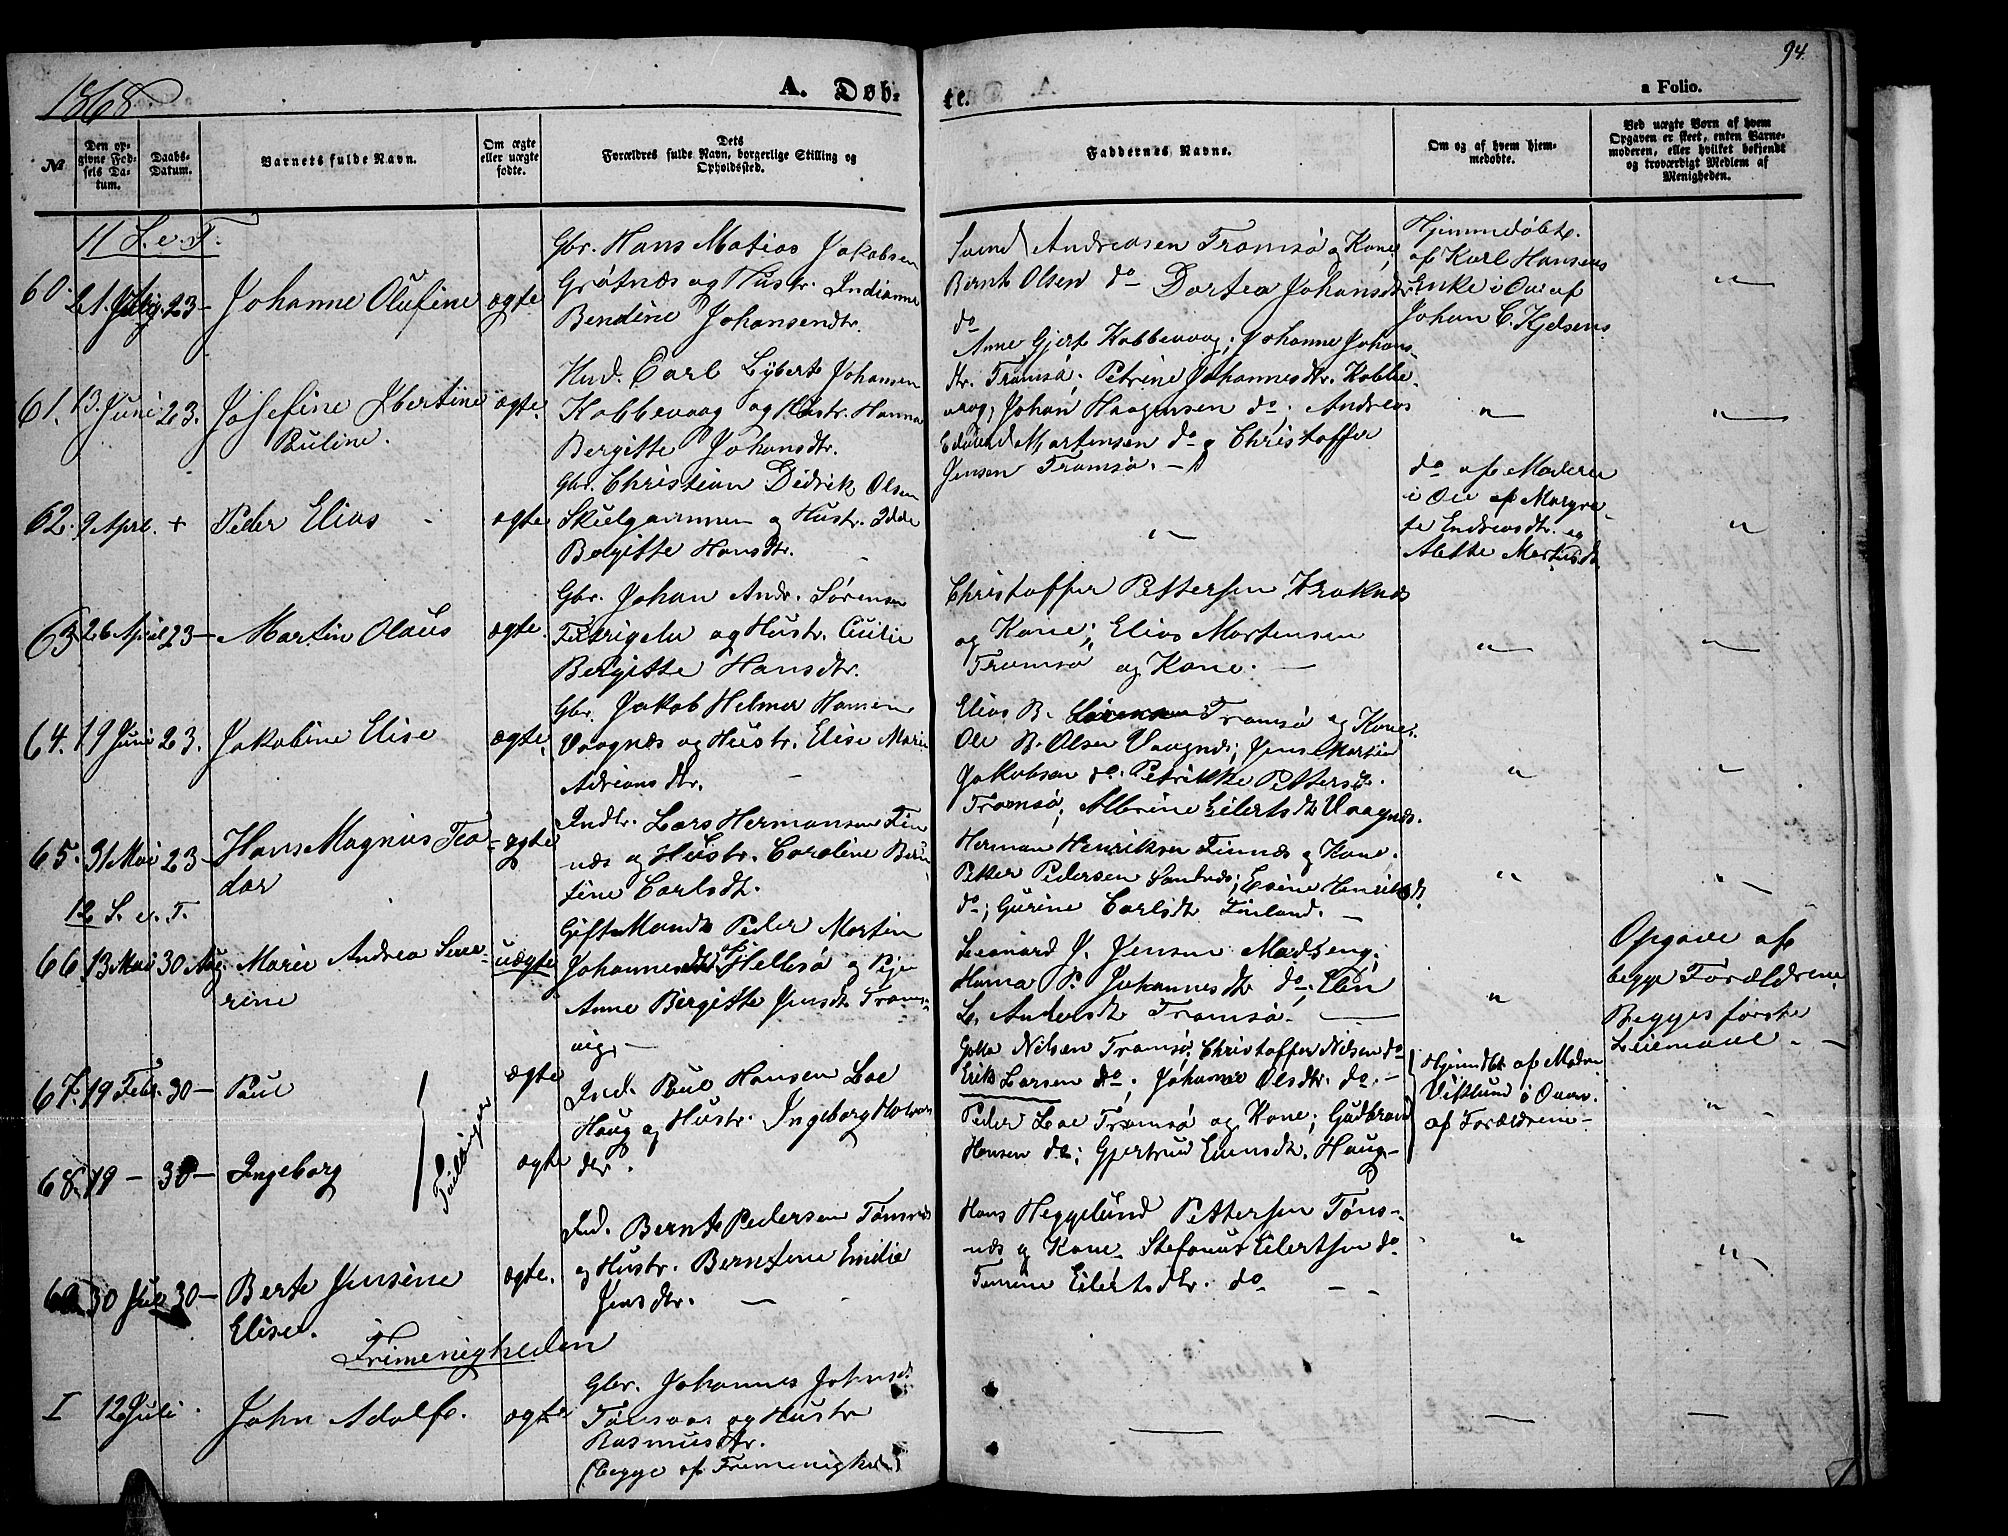 1868
A. Døb-
te.
94.
a Folio.
№
Den op-
givne Fød-
sels Da-
tum.
Daabs-
Datum.
Barnets fulde Navn.
Om ægte
eller uægte
fødte.
Dets
Forældres fulde Navn, borgerlige Stilling og
Opholdssted.
Faddernes Navne.
Om og af hvem hjem-
medøbte.
Ved uægte Børn af hvem
Opgaven er skeet, enten Barne-
moderen, eller hvilket bekjendt
og troværdigt Medlem af
Menigheden.
11 S. e. T.
60. 21. 23 – Johanne Olufine ægte
Gbr. Hans Matias Jakobsen
Grøtnæs og Hustr. Indianne
Bendine Johansendtr.
Svend Andreasen Tromsø og Kone,
Bernt Olsen do Dortea Johansdtr
do
Hjemmedøbt
af Karl Hansens
Enke i Ov. af
Johan C. Kjelsens
"
61. 13. Juni 23. Josefine Ibertine
Pauline.
ægte.
Ind. Carl Lyberts Johansen
Kobbevaag og Hustr. Hanna
Bergitte Johansdtr.
Anne Gjert Kobbevaag; Johanne Johans-
dtr. Tromsø; Petrine Johannesdtr. Kobbe-
vaag; Johan Haagensen do; Andreas
Edvard Mortensen do og Christoffer
Jensen Tromsø. –
"
"
62. 9 April. + Peder Elias ægte
Gbr. Christian Didrik Olsen
Skulgammen og Hustr. Idde
Bergitte Hansdtr.
"
do af Moderen
i Ov. af Margre-
te Endreasdtr. og
Alette
"
63. 26 April 23 – Martin Olaus ægte.
Gbr. Johan Andr. Sørensen
og Hustr. Cecilie
Bergitte Hansdtr.
Christoffer Pettersen Kraknæs
og Kone; Elias Mortensen
Tromsø og Kone. –
"
"
64. 19 Juni 23. Jakobine Elise ægte.
Gbr. Jakob Helmer Hansen
Vaagnæs og Hustr. Elise Marie
Adriansdtr. –
Elias B. Tromsø og Kone.
Ole B. Olsen Vaagnæs; Jens Martin
Jakobsen do. Petrikke Pettersdtr.
Tromsø; Albrine Eilertsdtr Vaagnæs.
"
"
65. 31 Mai 23 – Hans Magnus Teo-
dor
ægte
Indtr. Lars Hermansen Fin
næs og Hustr. Caroline Berin
tine Carlsdtr.
Herman Henriksen Finnæs og Kone.
Petter Pedersen Sandnæs; Esine Henriksdtr
do; Gurine Carlsdtr Finland. –
"
"
12 S. e. T.
66. 13 Mai 30 Aug. Marie Andrea Seve-
rine
uægte
Gift Mand Peder Martin
Johannesen Hellesø og Pige
Anne Bergitte Jensdtr Troms-
vig. –
Leonard J. Jensen Madseng;
Hanna P. Johannesdtr do; Elen
L. Andersdtr Tromsø. –
"
Opgave af
begge Forældrene.
Begges første
Leiemaal. –
67. 19 Febr. 30 – Paul ægte
Tvillinger
Ind. Paul Hansen Loe
Haug og Hustr. Ingeborg Halvors
dtr.
Nilsen Tromsø, Christoffer Nilsen do
Erik Larsen do; Johanne Olsdtr. do. –
Hjemdbt af Madm
Viklund i Overv.
af Forældrene –
"
68. 19 – 30 – Ingeborg ægte
Peder Loe Tromsø og Kone; Gudbrand
Hansen do; Gjertrud Evensdtr. Haug –
69 30 Juli 30 – Berte Jensine
Elise.
ægte.
Ind. Bernt Pedersen Tønsnæs
og Hustr. Berntine Emilie
Jensdtr. – –
Hans Heggelund Pettersen Tøns-
næs og Kone Stefanus Eilertsen do
Eilertsdtr. do – –
"
"
Frimenigheden
I 12 Juli. John Adolf. ægte
Gbr. Johannes Johns.
og Hustr
Rasmusdtr.
(begge af Frimenighed)
—
—
—